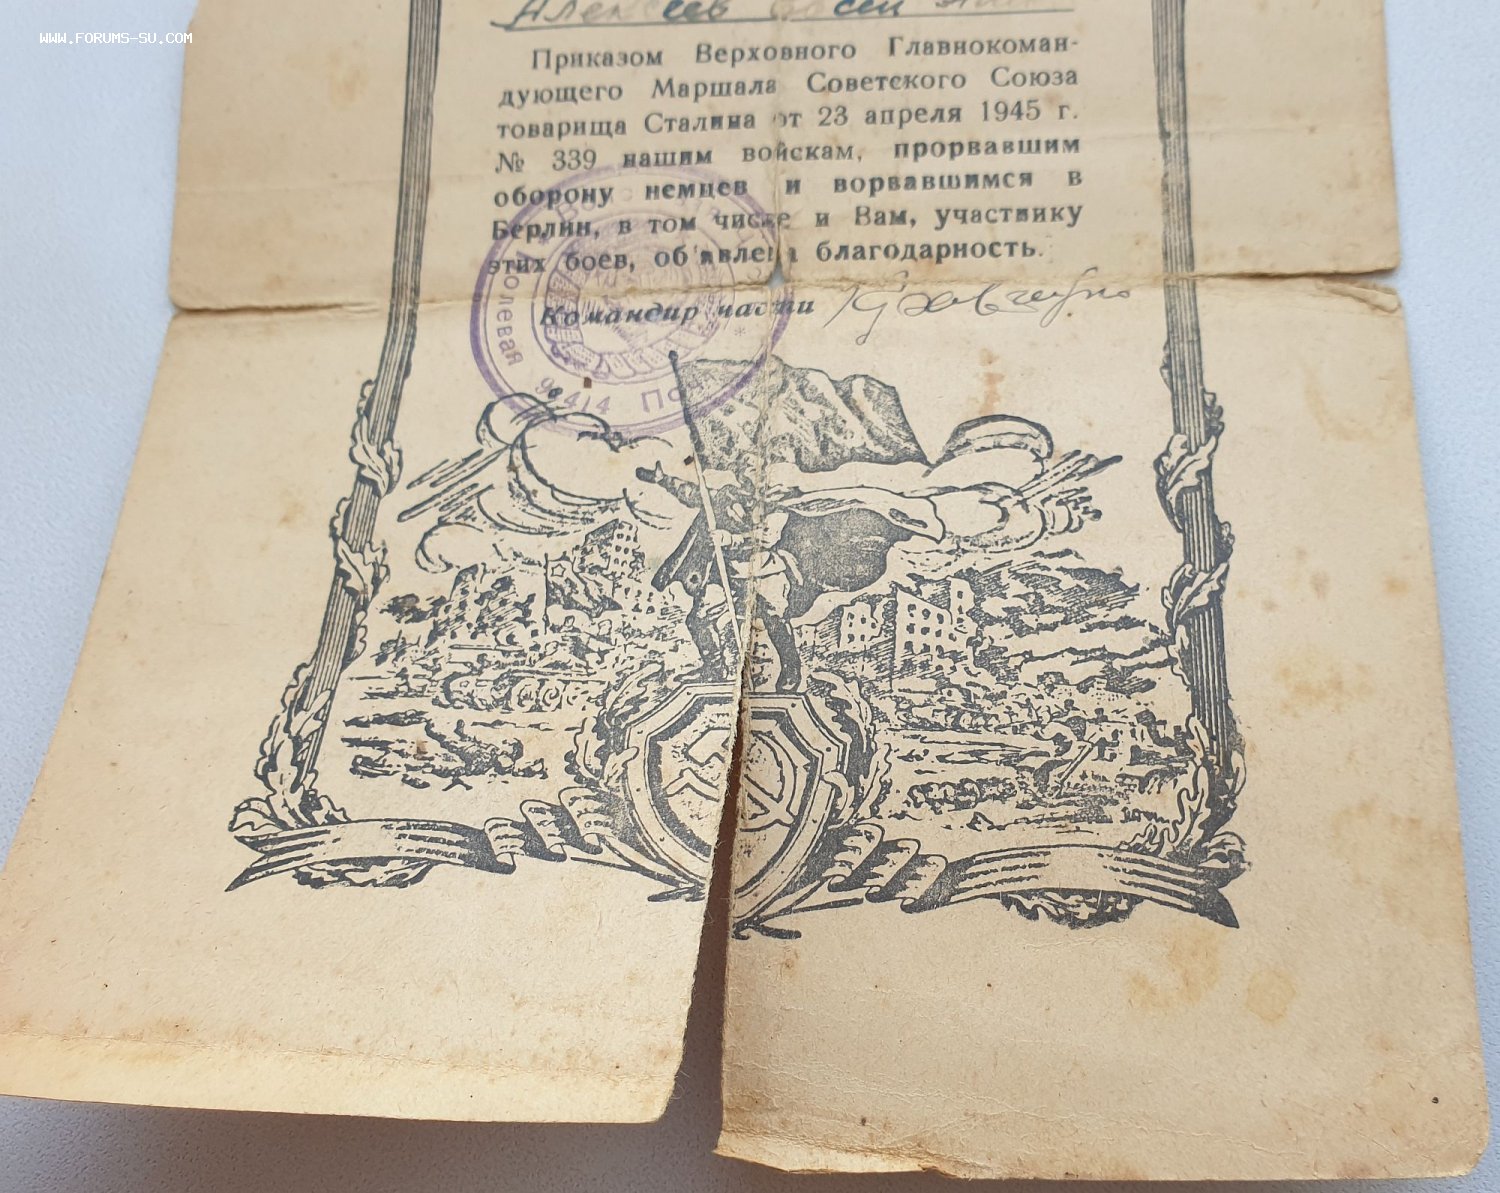 WWW.FORUMS-SU.COM
Алексеев
Приказом Верховного Главнокоман-
дующего Маршала Советского Союза
товарища Сталина от 23 апреля 1945 г.
№ 339 нашим войскам, прорвавшим
оборону немцев и ворвавшимся в
Берлин, в том числе и Вам, участнику
этих боев, об'явлена благодарность.
Командир части
Полевая